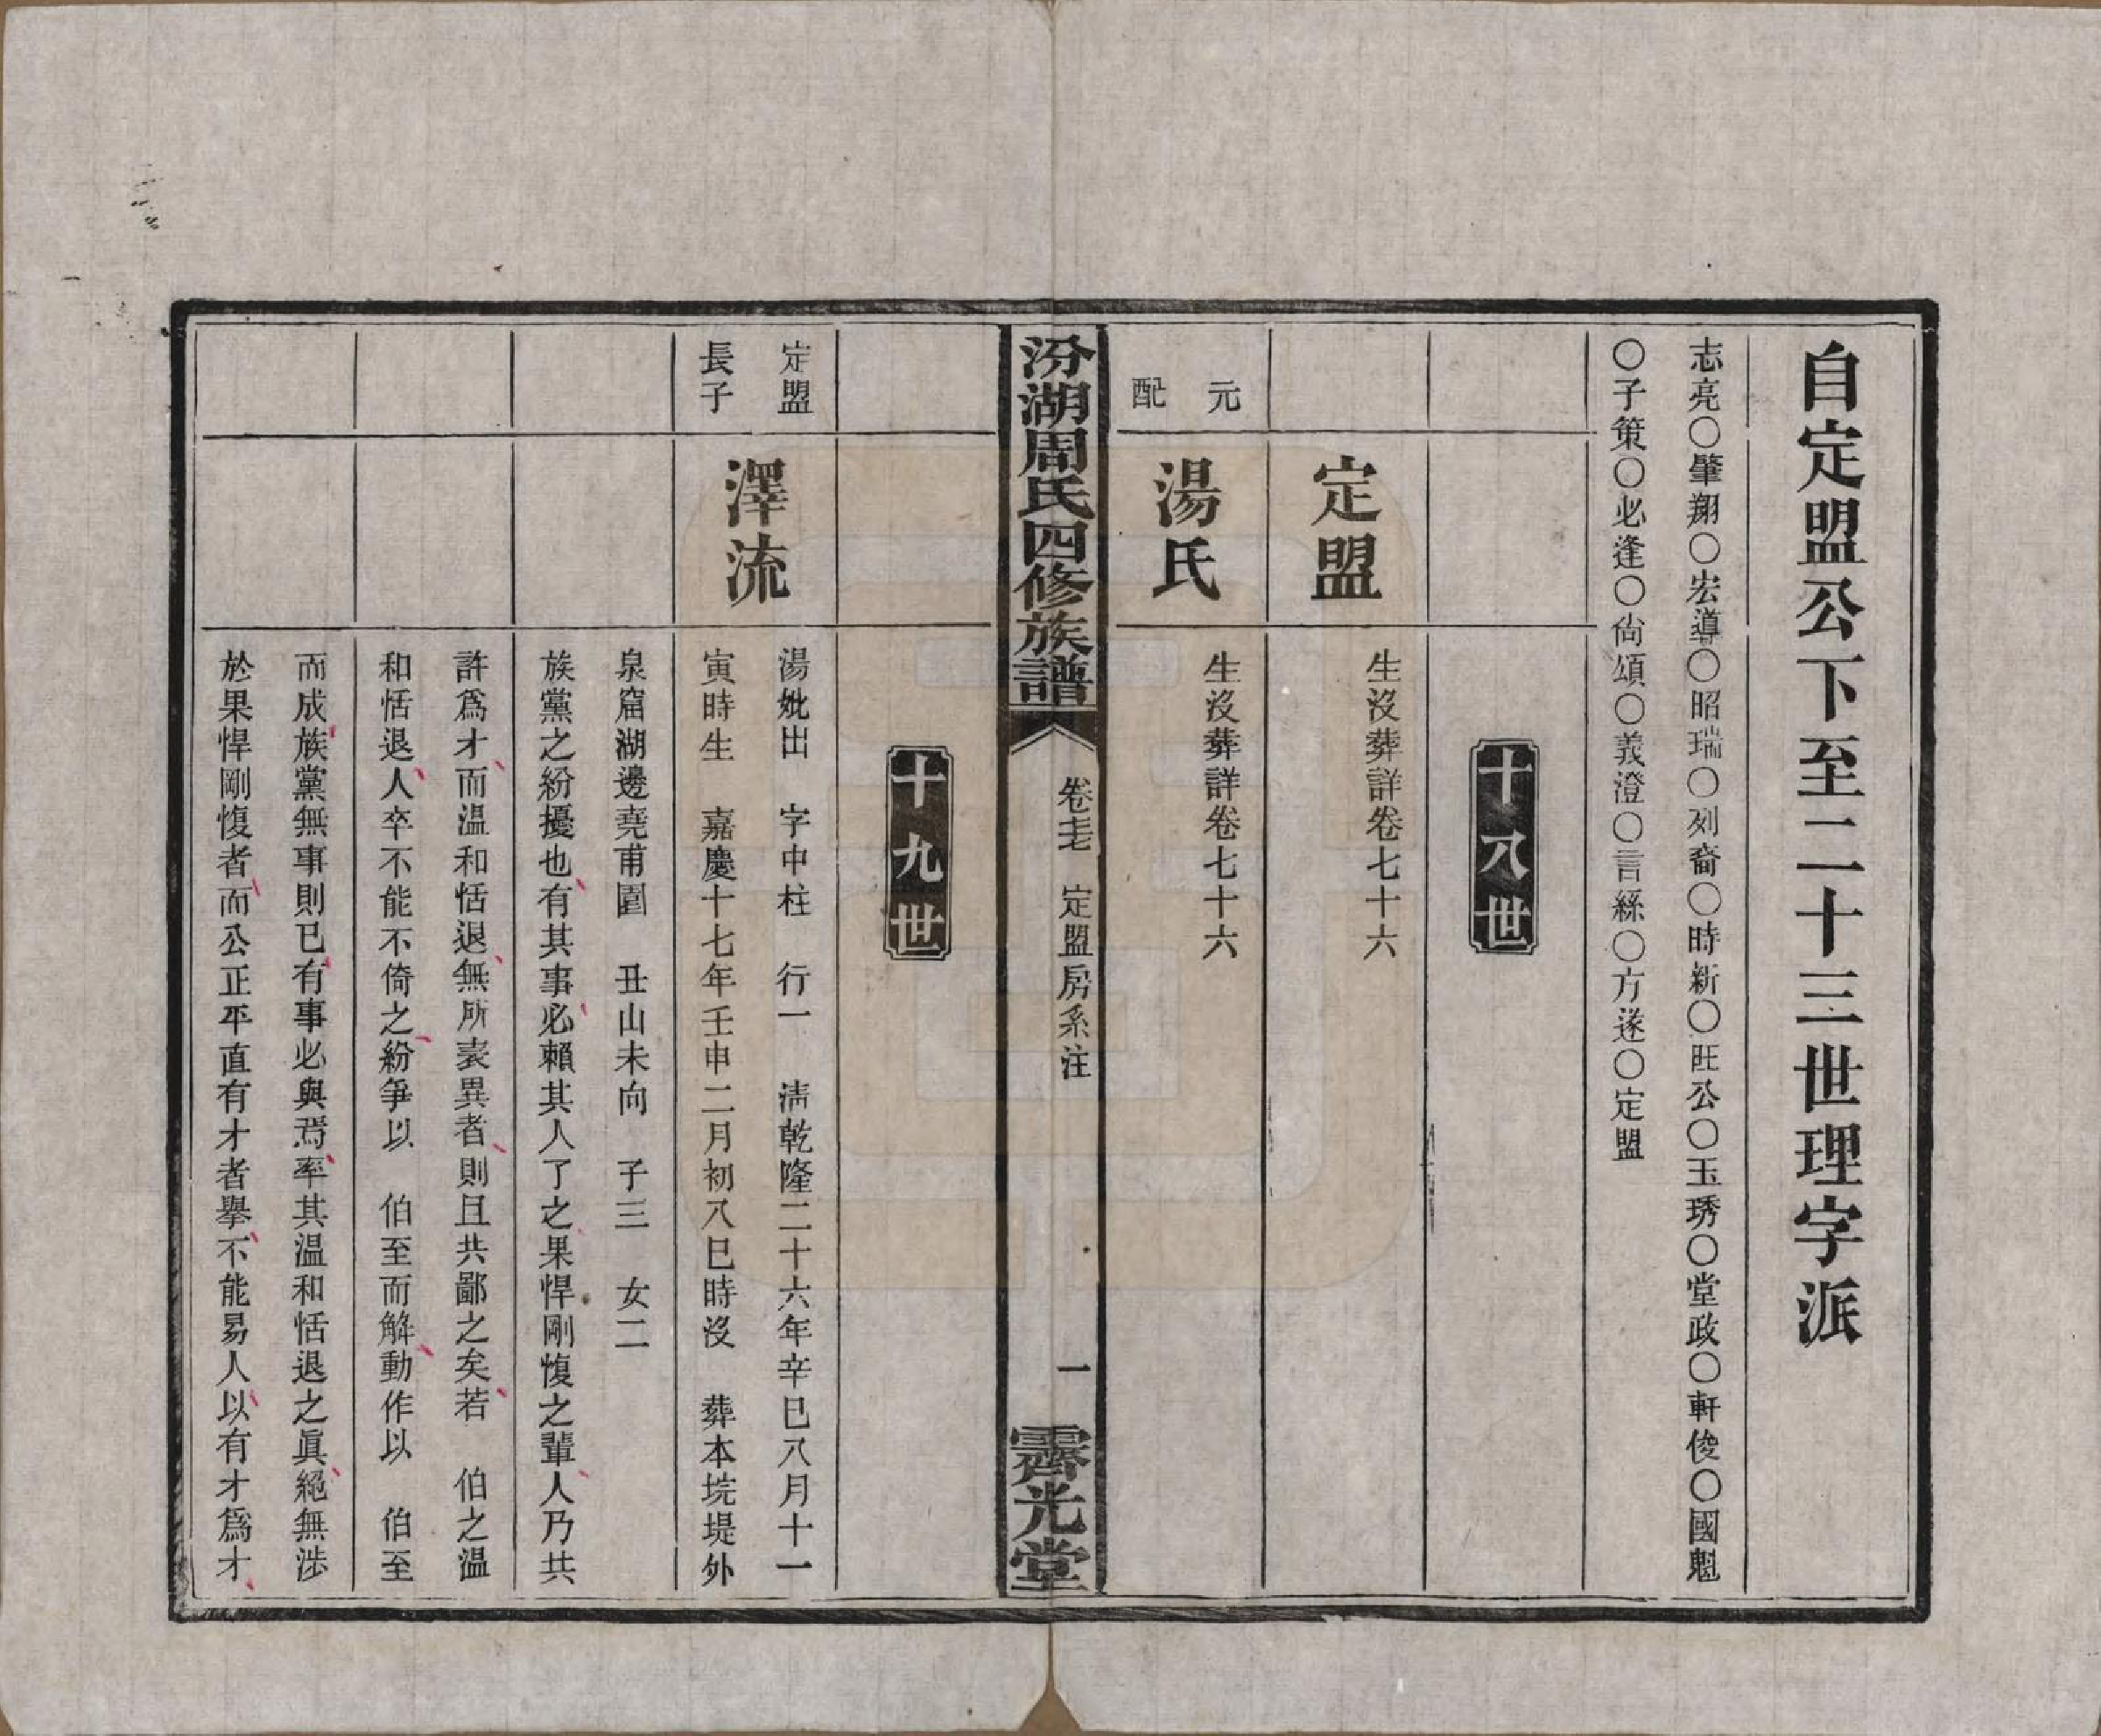 自定盟公下至二十三世理字派
志亮〇肇翔〇宏導〇昭瑞〇列裔〇時新〇旺公〇玉琇〇堂政〇軒俊〇國魁
〇子策〇必逢〇尙頌〇義澄〇言絲〇方遂〇定盟
十八世
定盟
生沒葬詳卷七十六
元配
湯氏
生沒葬詳卷七十六
汾湖周氏四修族譜
卷七十七
定盟房系注
一
霽光堂
十九世
定盟
長子
澤流
湯妣出 字中柱 行一 淸乾隆二十六年辛巳八月十一
寅時生 嘉慶十七年壬申二月初八巳時沒 葬本垸堤外
泉窟湖邊堯甫圍 丑山未向 子三 女二
族黨之紛擾也有其事必賴其人了之果悍剛愎之輩人乃共
許爲才而温和恬退無所表異者則且共鄙之矣若 伯之温
和恬退人卒不能不倚之紛爭以 伯至而解動作以 伯至
而成族黨無事則已有事必與焉率其温和恬退之眞絕無涉
於果悍剛愎者而公正平直有才者舉不能易人以有才爲才